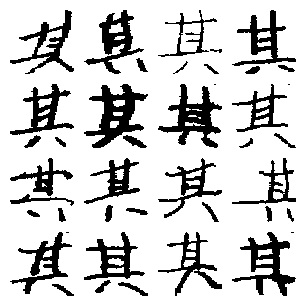 其其其其
其其其其
其其其其
其其其其